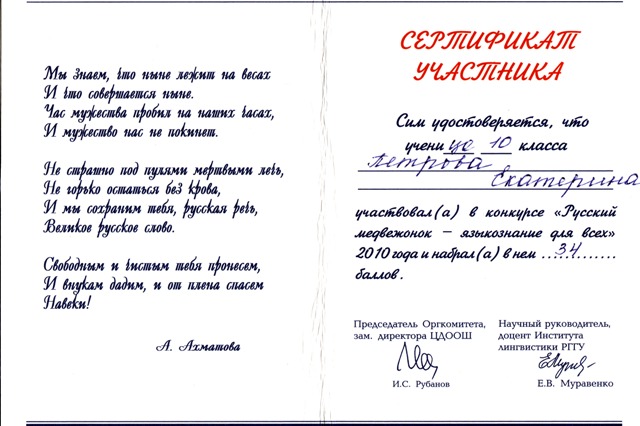 Мы знаем, что ныне лежит на весах
И что совершается ныне.
Час мужества пробил на наших часах,
И мужество нас не покинет.
Не страшно под пулями мертвыми лечь,
Не горько остаться без крова,
И мы сохраним тебя, русская речь,
Великое русское слово.
Свободным и чистым тебя пронесем,
И внукам дадим, и от плена спасем
Навеки!
А. Ахматова
СЕРТИФИКАТ
УЧАСТНИКА
Сим удостоверяется, что
учени ца 10 класса
Петрова
Екатерина
участвовал(а) в конкурсе «Русский
медвежонок – языкознание для всех»
2010 года и набрал(а) в нем ...34............
баллов.
Председатель Оргкомитета,
зам. директора ЦДООШ
И.С. Рубанов
Научный руководитель,
доцент Института
лингвистики РГГУ
Е.В. Муравенко